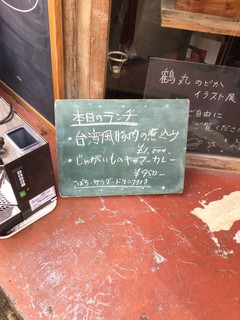 本日のランチ
・台湾風豚肉の煮込み
¥1,000
・じゃがいものキーマカレー
¥950-
こばち・サラダ・ドリンク付き
鶴丸のどか
イラスト展
ご自由に
ご覧ください